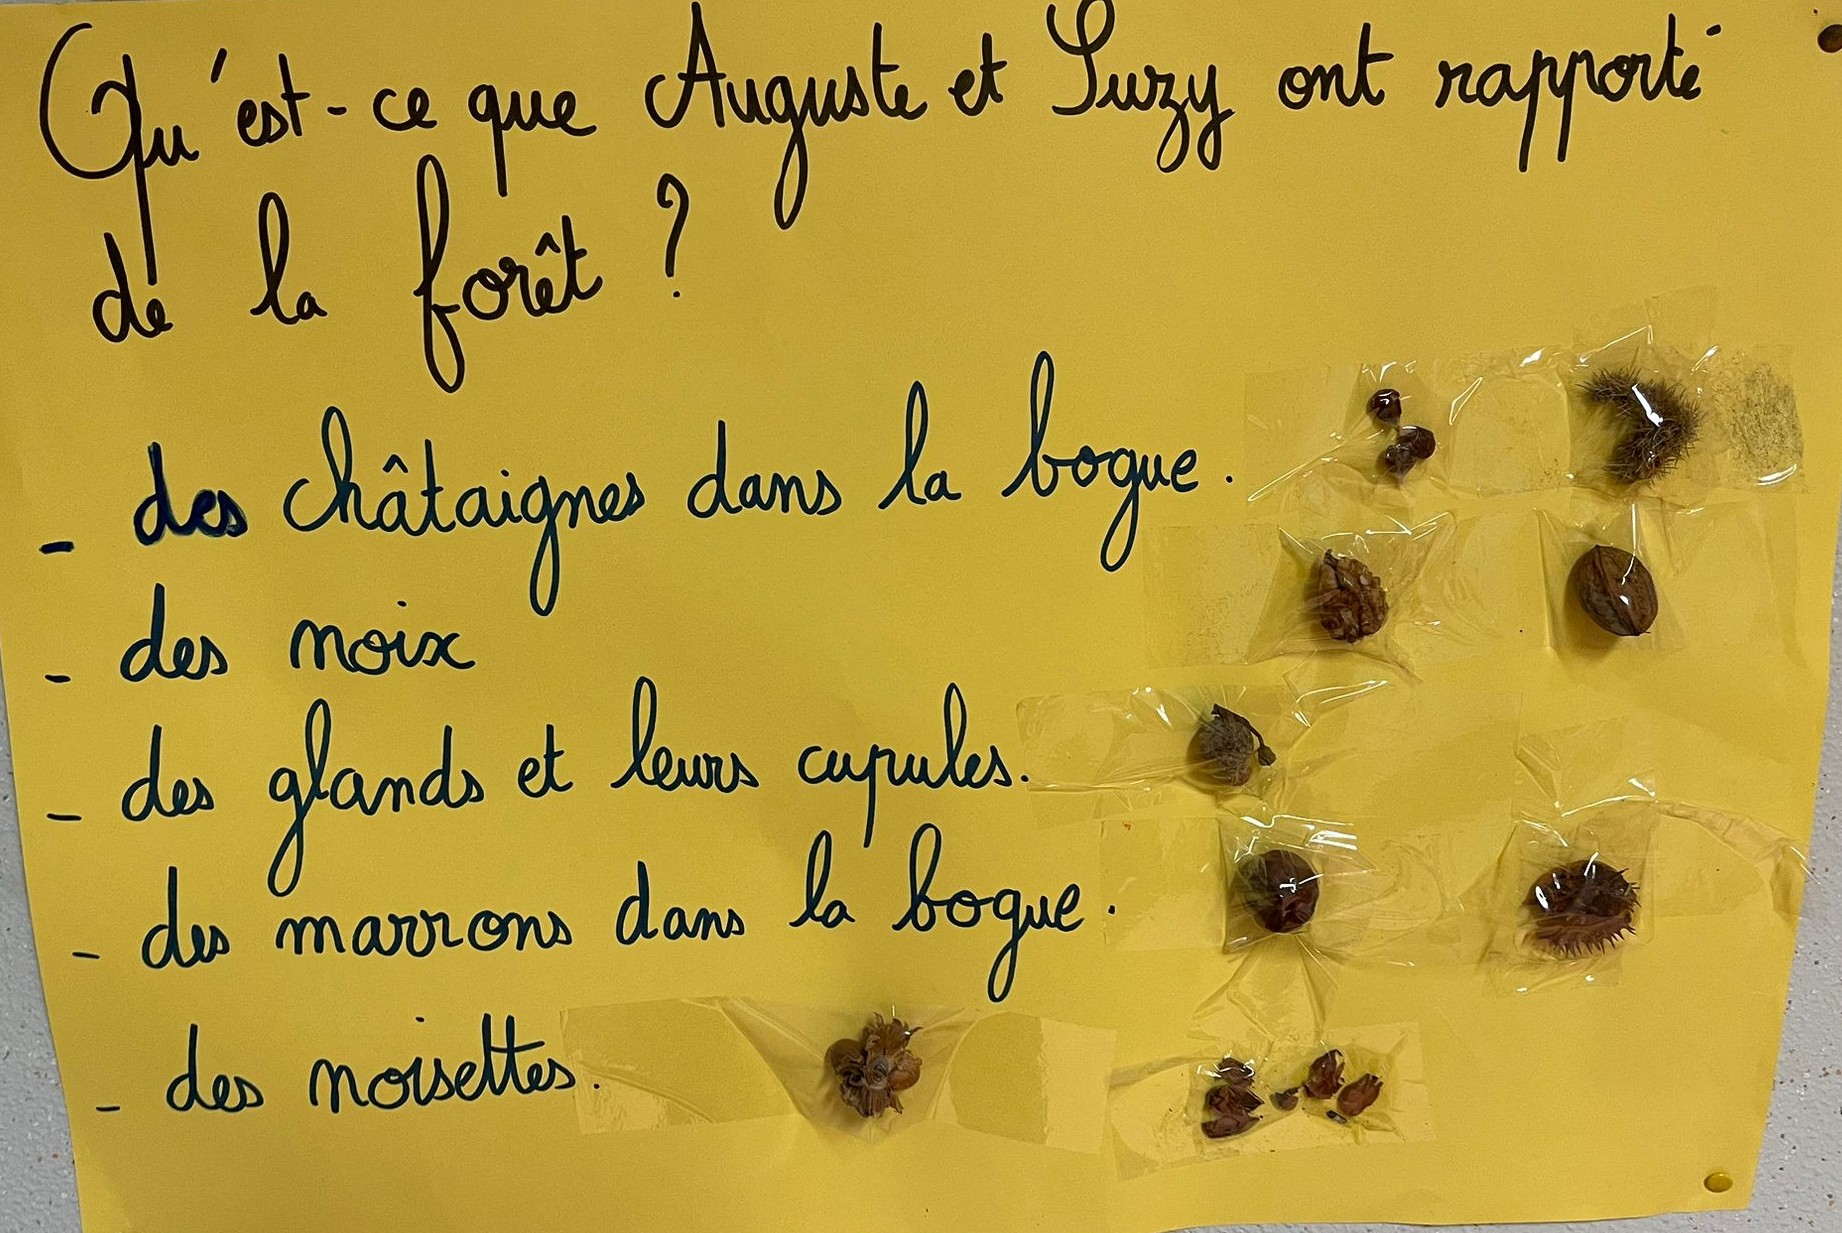 Qu'est-ce que Auguste et Suzy ont rapporté
de la forêt ?
- des châtaignes dans la bogue.
- des noix
- des glands et leurs cupules.
- des marrons dans la bogue.
- des noisettes.